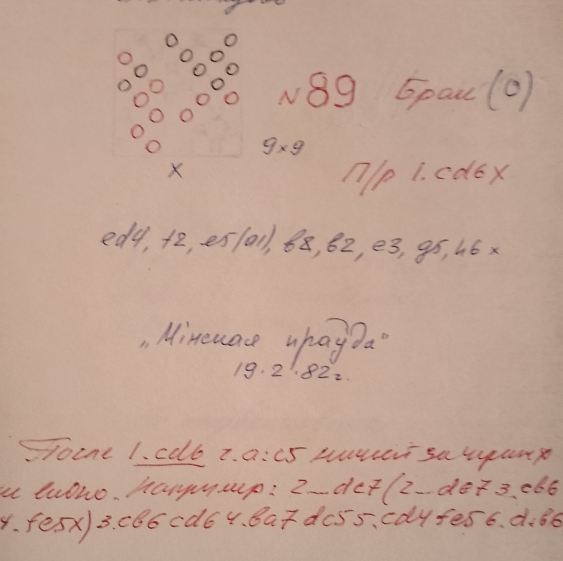 №89 Брак (0)
9×9
×
П/р 1.cd6×
ed4, f2, e5(a1), b8, b2, e3, g5, h6 ×
„Мінская праўда"
19.2.82г.
После 1.cd6 2.a:c5 ничьей за черных
видно. Например: 2...dc7(2...de7 3.cb6
4.fe5x) 3.cb6 cd6 4.ba7 dc5 5.cd4 fe5 6.d:b6